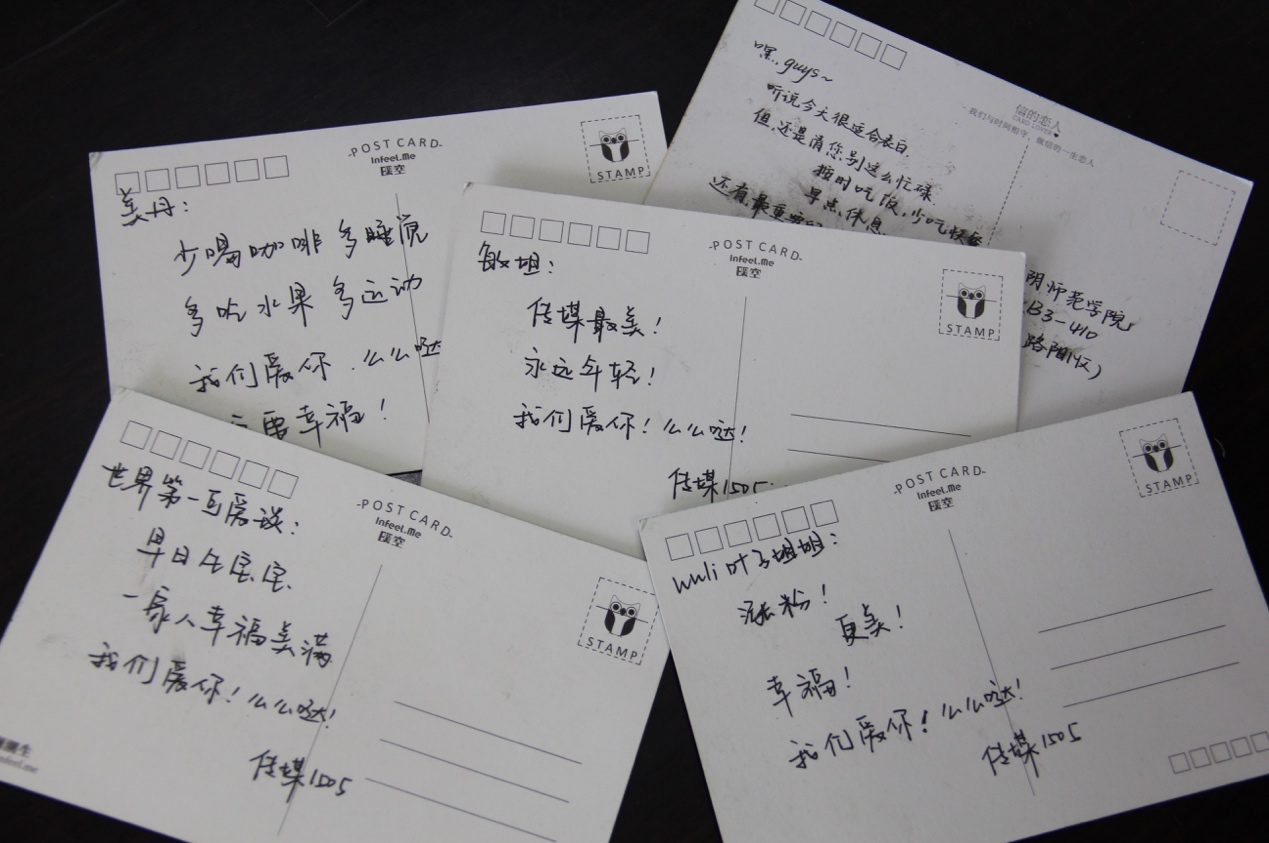 嘿,guys~
听说今天很适合表白.
但,还是请您别这么忙碌
按时吃饭,少吃快餐
早点休息.
还有,最重要的
信的恋人
CARD LOVER
我们与时间相守,做信的一生恋人
阴师范学院
B3-410
POST CARD
InFeeL.Me
暖空
STAMP
美丹:
少喝咖啡 多睡觉
多吃水果 多运动
我们爱你,么么哒
要幸福!
POST CARD
InFeeL.Me
暖空
STAMP
敏姐:
传媒最美!
永远年轻!
我们爱你!么么哒!
传媒1505
POST CARD
InFeeL.Me
暖空
STAMP
世界第一可爱谈:
早日生宝宝
一家人幸福美满
我们爱你!么么哒!
传媒1505
POST CARD
InFeeL.Me
暖空
STAMP
wuli叶子姐姐:
涨粉!
更美!
幸福!
我们爱你!么么哒!
传媒1505